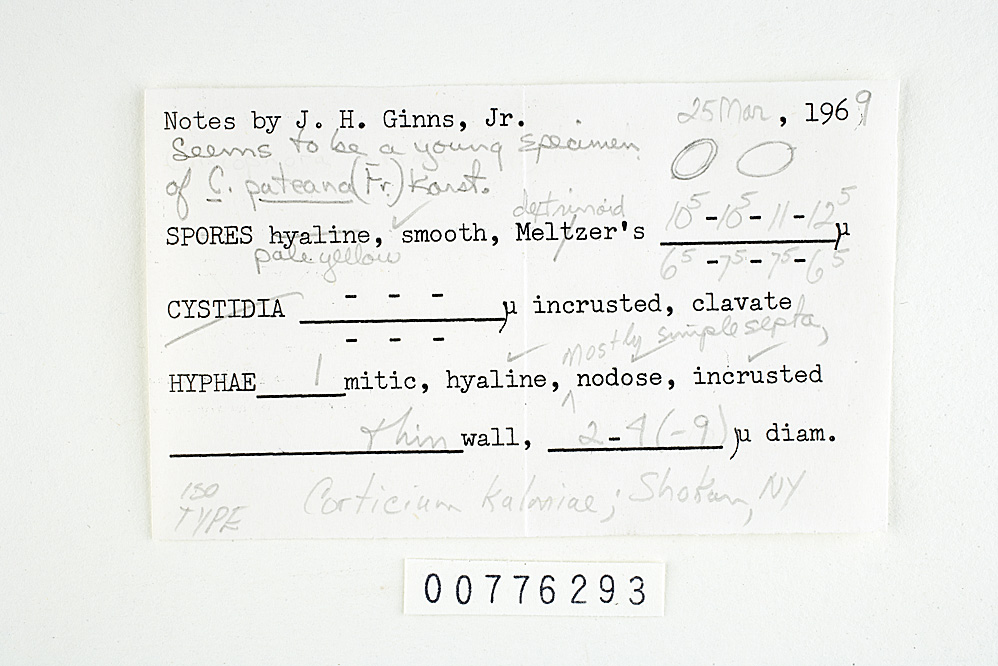 Notes by J. H. Ginns, Jr. 25 Mar, 1969
Seems to be a young specimen
of C. puteana (Fr.) Karst.
dextrinoid
SPORES hyaline, smooth, Meltzer's 10⁵-10⁵-11-12⁵ µ
pale yellow 6⁵-7⁵-7⁵-6⁵
- - -
CYSTIDIA µ incrusted, clavate
- - -
mostly simple septa,
HYPHAE 1 mitic, hyaline, nodose, incrusted
thin wall, 2-4(-9) µ diam.
ISO
TYPE Corticium kalmiae; Shokan, NY
00776293